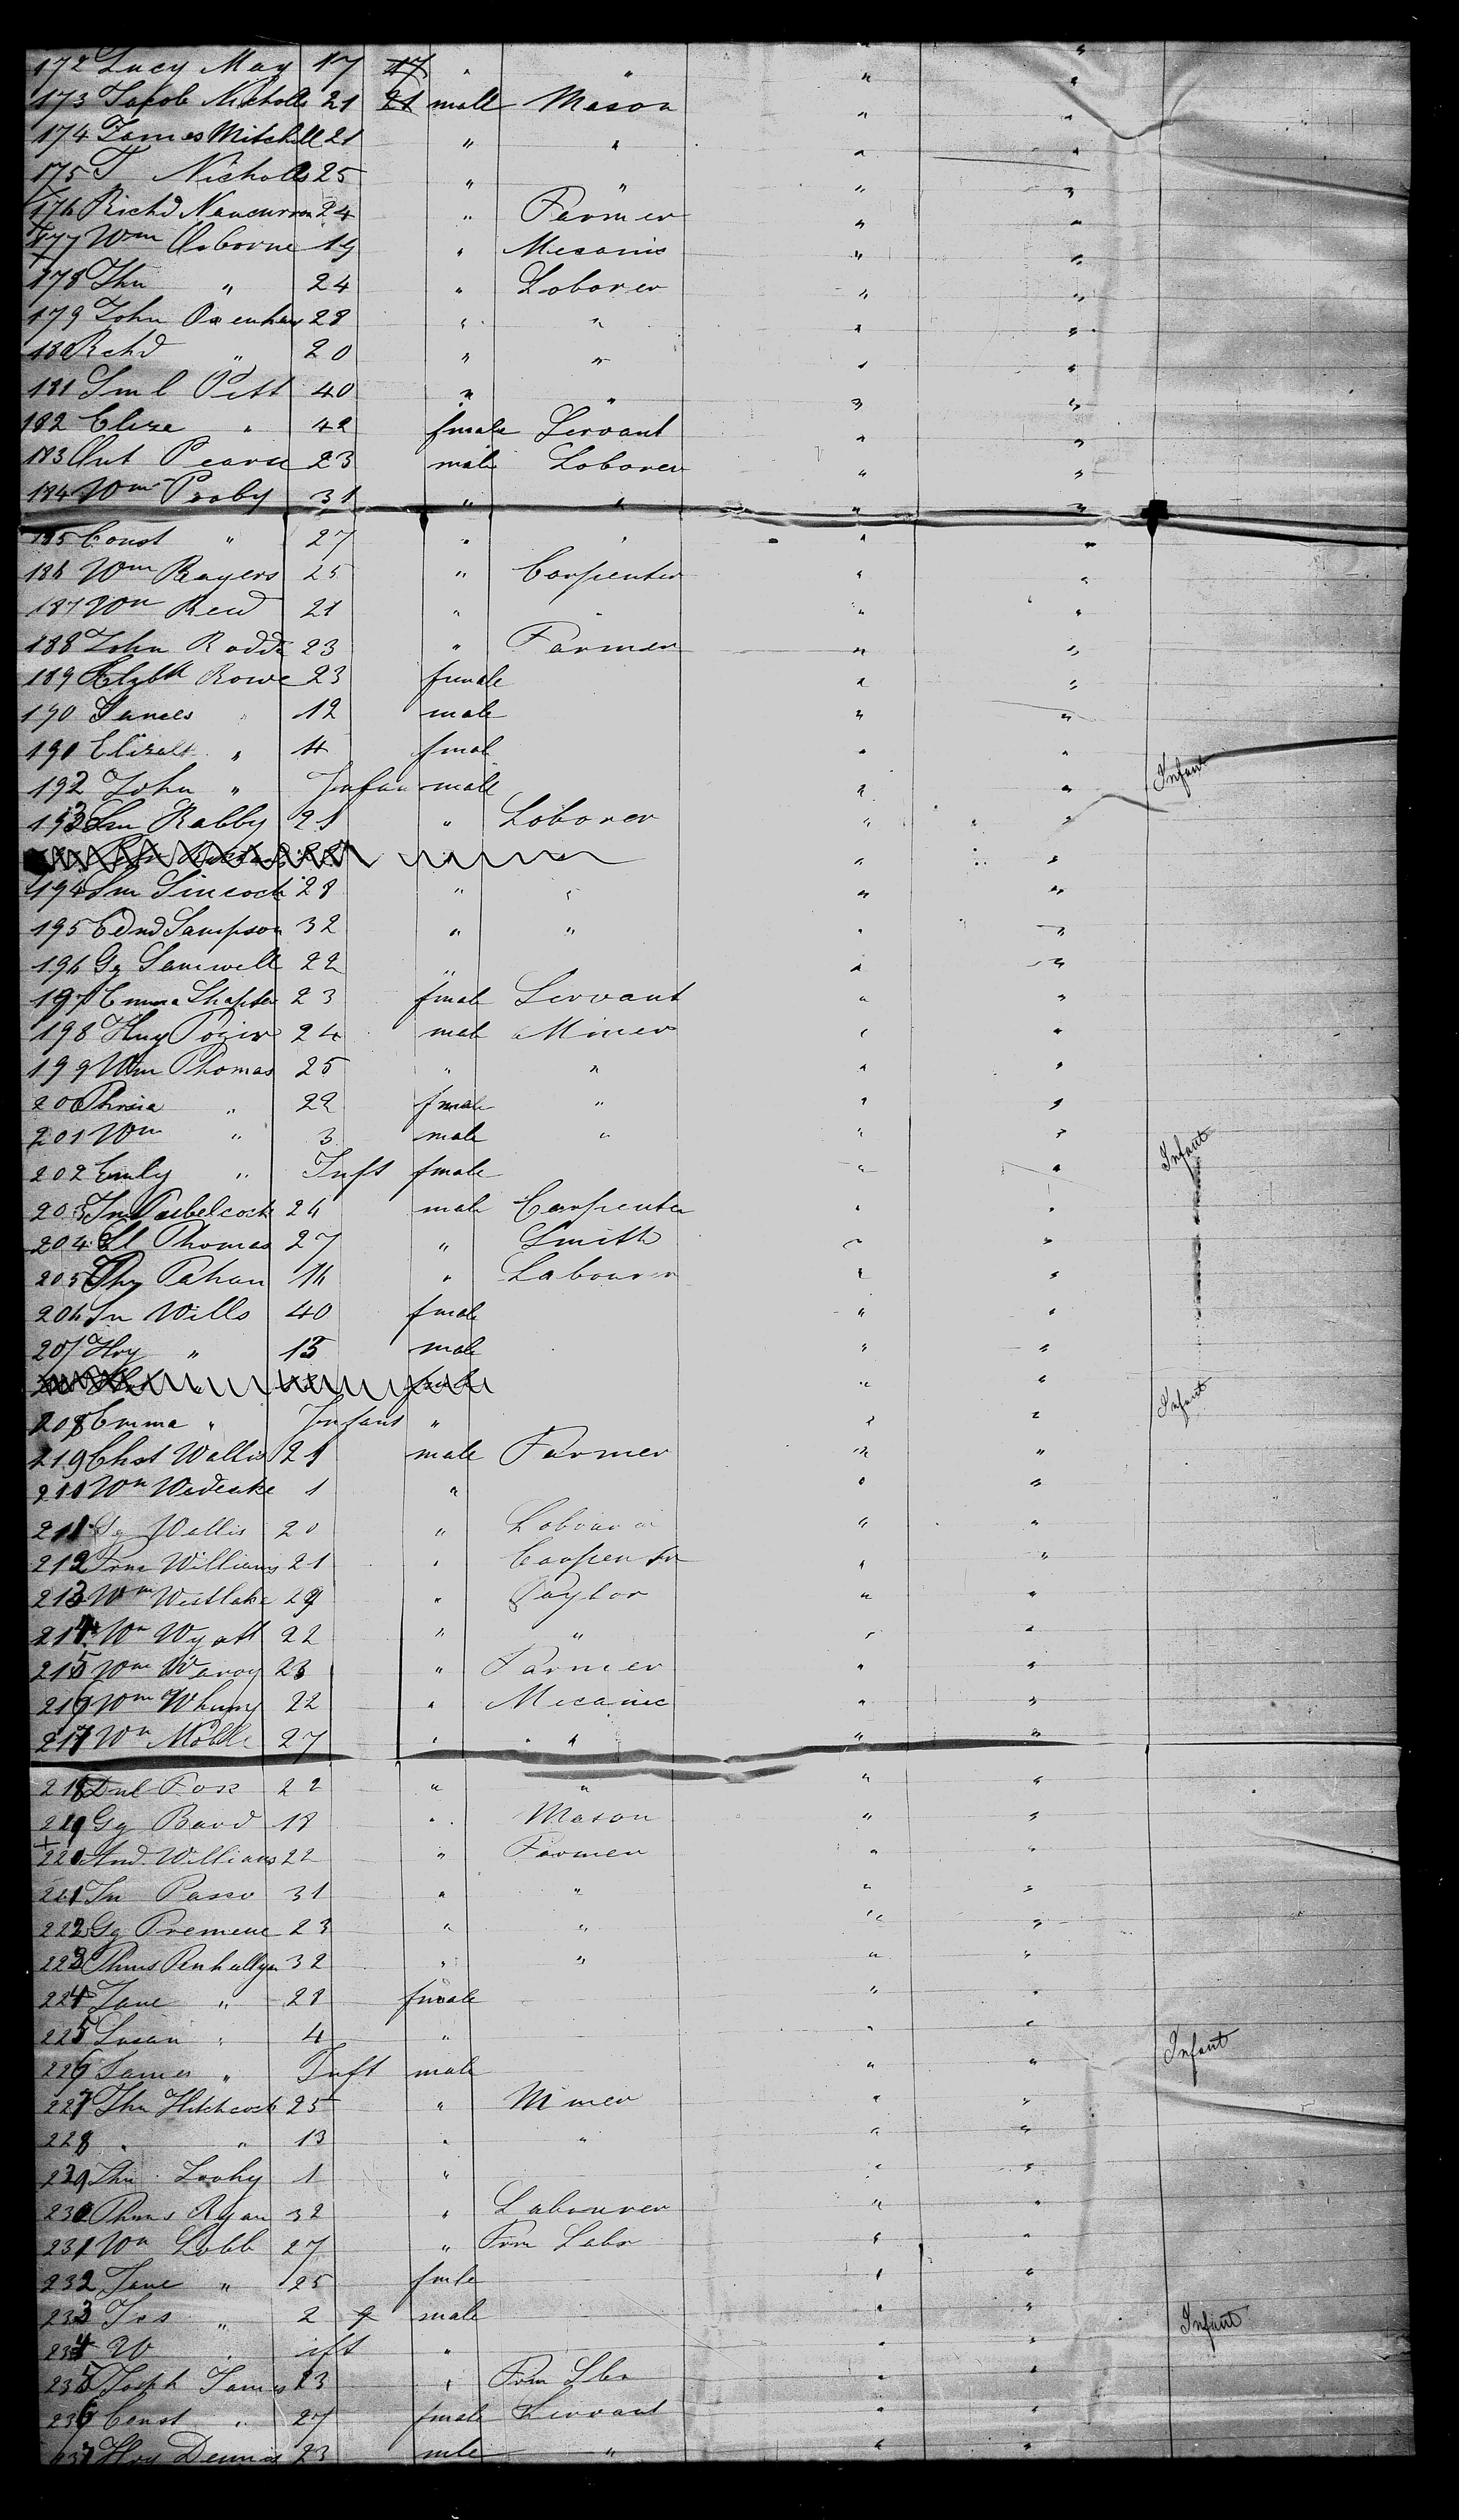 172 Lucy May 17 17 " " " "
173 Jacob Nicholls 21 21 male Mason " "
174 James Mitchell 21 " " " "
175 T Nicholls 25 " " " "
176 Richd 24 " Farmer " "
177 Wm Osborne 19 " Mecanic " "
178 Thn " 24 " Loborer " "
179 John 28 " " " "
180 Rchd " 20 " " " "
181 Sml Pitt 40 " " " "
182 Eliza " 42 fmale Servant " "
183 Ant Pearse 23 male Loborer " "
184 Wm Proby 31 " " " "
185 Const " 27 " " " "
186 Wm Rogers 25 " Carpenter " "
187 Wm Reed 21 " " " "
188 John Rodda 23 " Farmer " "
189 Elzbth Rowe 23 fmale " "
190 James " 12 male " "
191 Elizabt " 4 fmal " "
192 John " Infan male " " Infant
193 Sm Rabby 21 " Loborer " "
194 Sm Sincock 28 " " " "
195 Edmd Sampson 32 " " " "
196 Gg Samwell 22 " " "
197 Emma Shapter 23 fmale Servant " "
198 Hny 24 male Miner " "
199 Wm Thomas 25 " " " "
200 " 22 fmale " " "
201 Wm " 3 male " " "
202 Emly " Inft fmale " " Infant
203 Jn 24 male Carpenter " "
204 Thomas 27 " Smith " "
205 16 " Labourer " "
206 Jn Wills 40 fmale " "
207 Hry " 13 male " "
208 Emma " Infant " " " Infant
219 Chst Wallis 21 male Farmer " "
210 Wm 1 " " "
211 Gg Wellis 20 " Labourer " "
212 Frns Williams 21 " Carpenter " "
213 Wm Westlake 29 " Taylor " "
214 Wm Wyatt 22 " " " "
215 Wm 23 " Farmer " "
216 Wm 22 " Mecanic " "
217 Wm 27 " " " "
218 Dnl Fox 22 " " " "
219 Gg 18 " Mason " "
220 And. Williams 22 " Farmer " "
221 Jn 31 " " " "
222 Gg 23 " " " "
223 Thms Penhallgn 32 " " " "
224 Jane " 28 fmale " "
225 Susan " 4 " " "
226 James " Inft male " " Infant
227 Thn Hitchcock 25 " Miner " "
228 " " 13 " " " "
229 Thn 1 " " "
230 Thms Ryan 32 " Labourer " "
231 Wm Lobb 27 " Frm Labr " "
232 Jane " 25 fmle " "
233 Jos " 2 male " "
234 W " ift " " " Infant
235 Joseph James 23 " Frm Lbr " "
236 Const " 27 fmale Servant " "
237 Hry Dennis 23 mle " " "